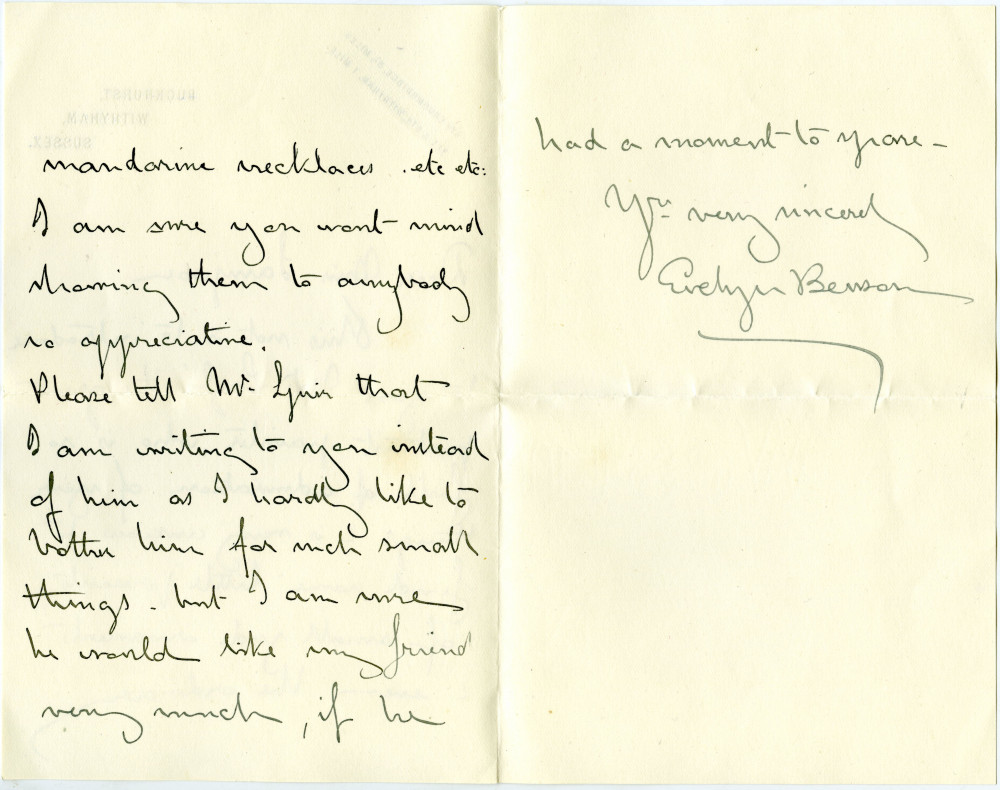 mandarine necklaces . etc etc:
I am sure you wont mind
showing them to anybody
so appreciative.
Please tell Mr. that
I am writing to you instead
of him as I hardly like to
bother him for such small
things - but I am sure
he would like my friend
very much, if he
had a moment to spare -
Yrs very sincerely
Evelyn Benson
BUCKHURST,
WITHYHAM,
SUSSEX.